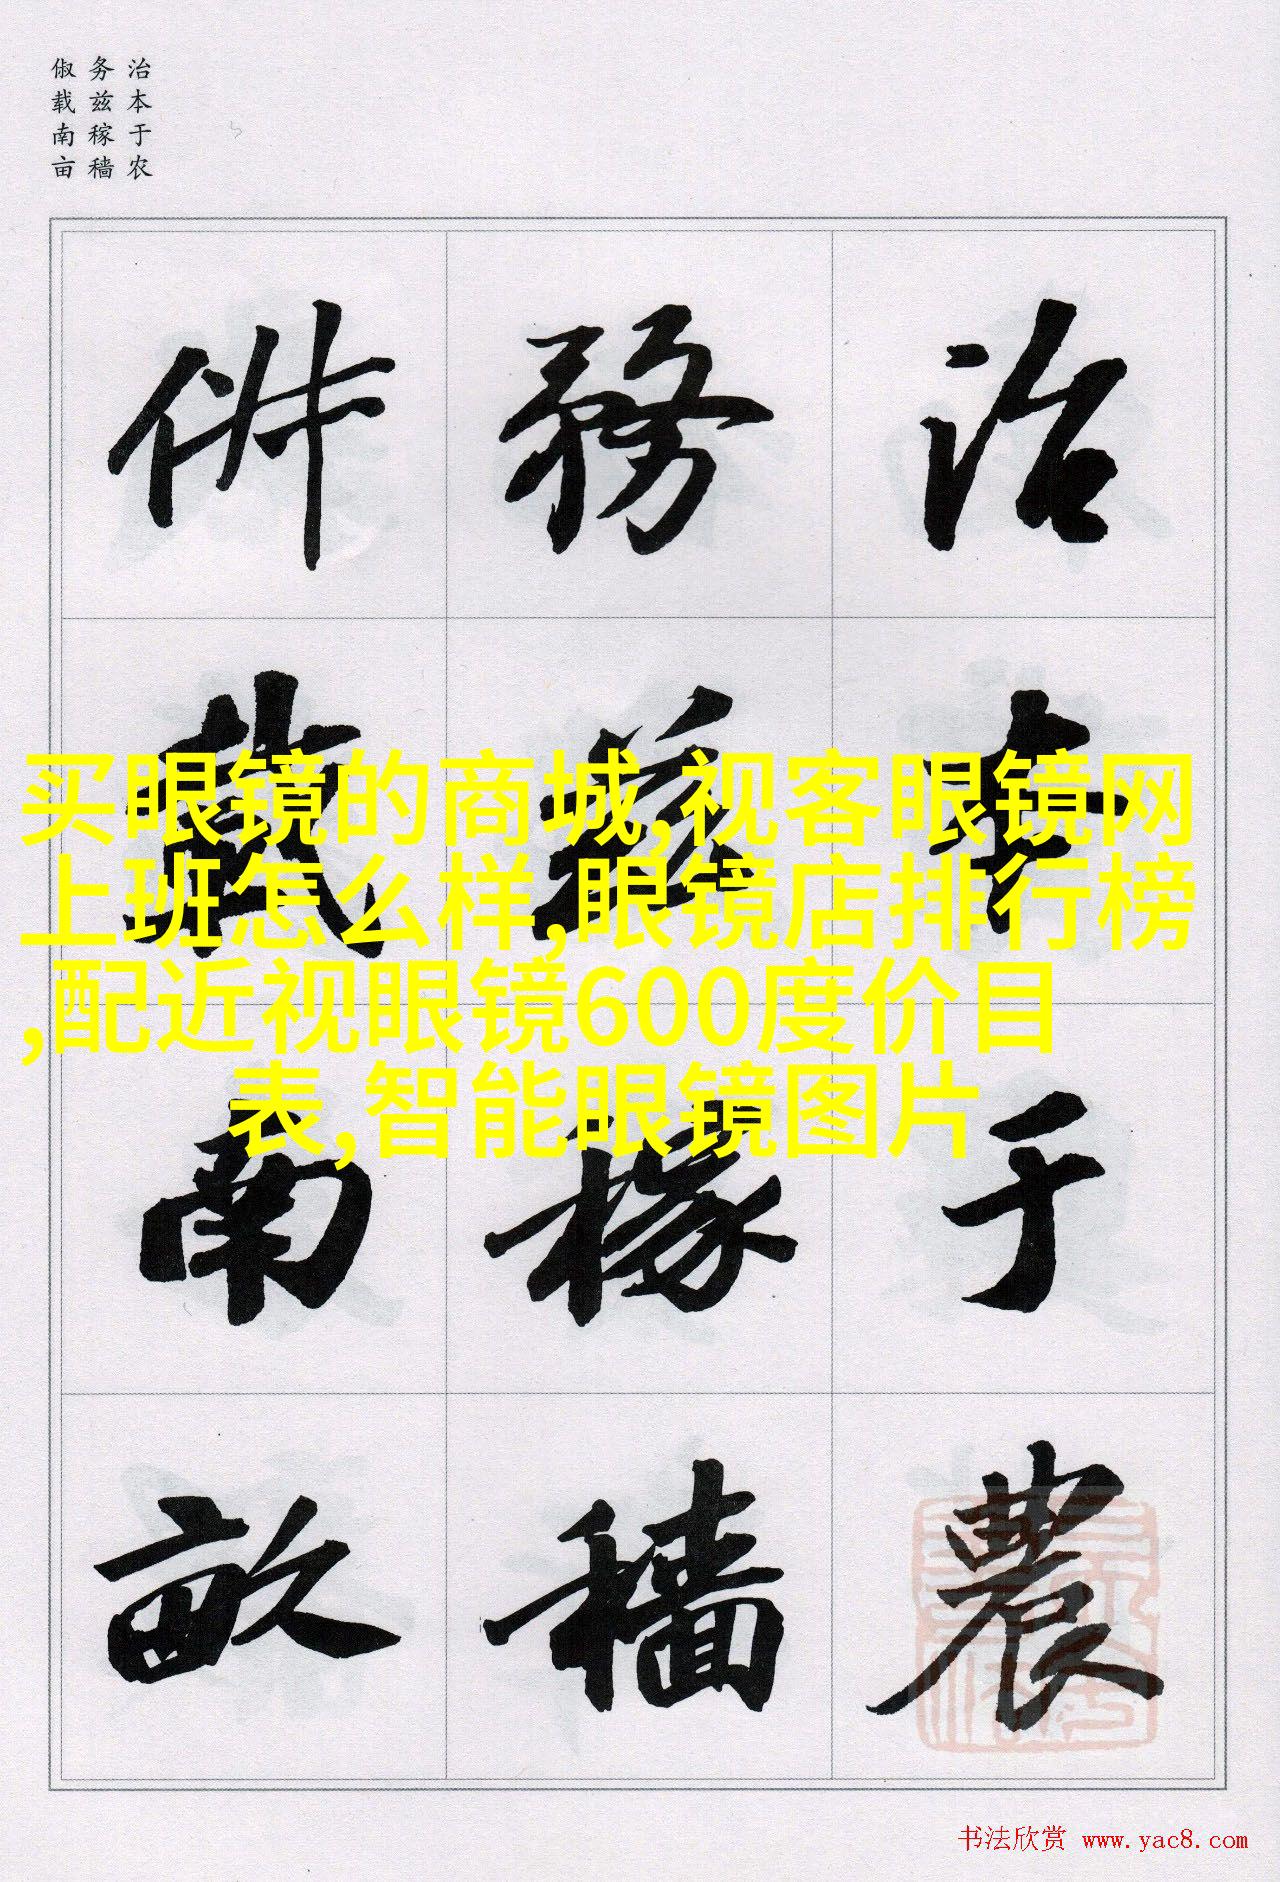 治本于农
务兹稼穑
俶载南亩
治本于農
務茲稼穡
俶載南畝
买眼镜的商城,视客眼镜网
上班怎么样,眼镜店排行榜
,配近视眼镜600度价目
表,智能眼镜图片
书法欣赏 www.yac8.com